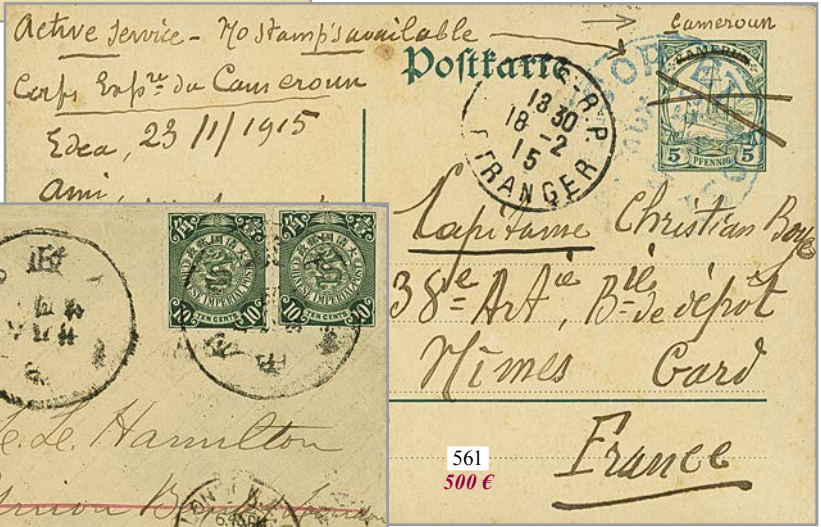 Active Service - No Stamp's available
Cameroun
Corps Expre du Cameroun
Edea, 23/1/1915
Ami,
Postkarte
KAMERUN
5 PFENNIG 5
R.P.
18 30
18 - 2
15
ETRANGER
Capitaine Christian Boye
38e Artie, Bie de dépôt
Nimes Gard
France
561
500 €
CHINESE IMPERIAL POST
10 TEN CENTS 10
CHINESE IMPERIAL POST
10 TEN CENTS 10
Hamilton
Union
6.15PM